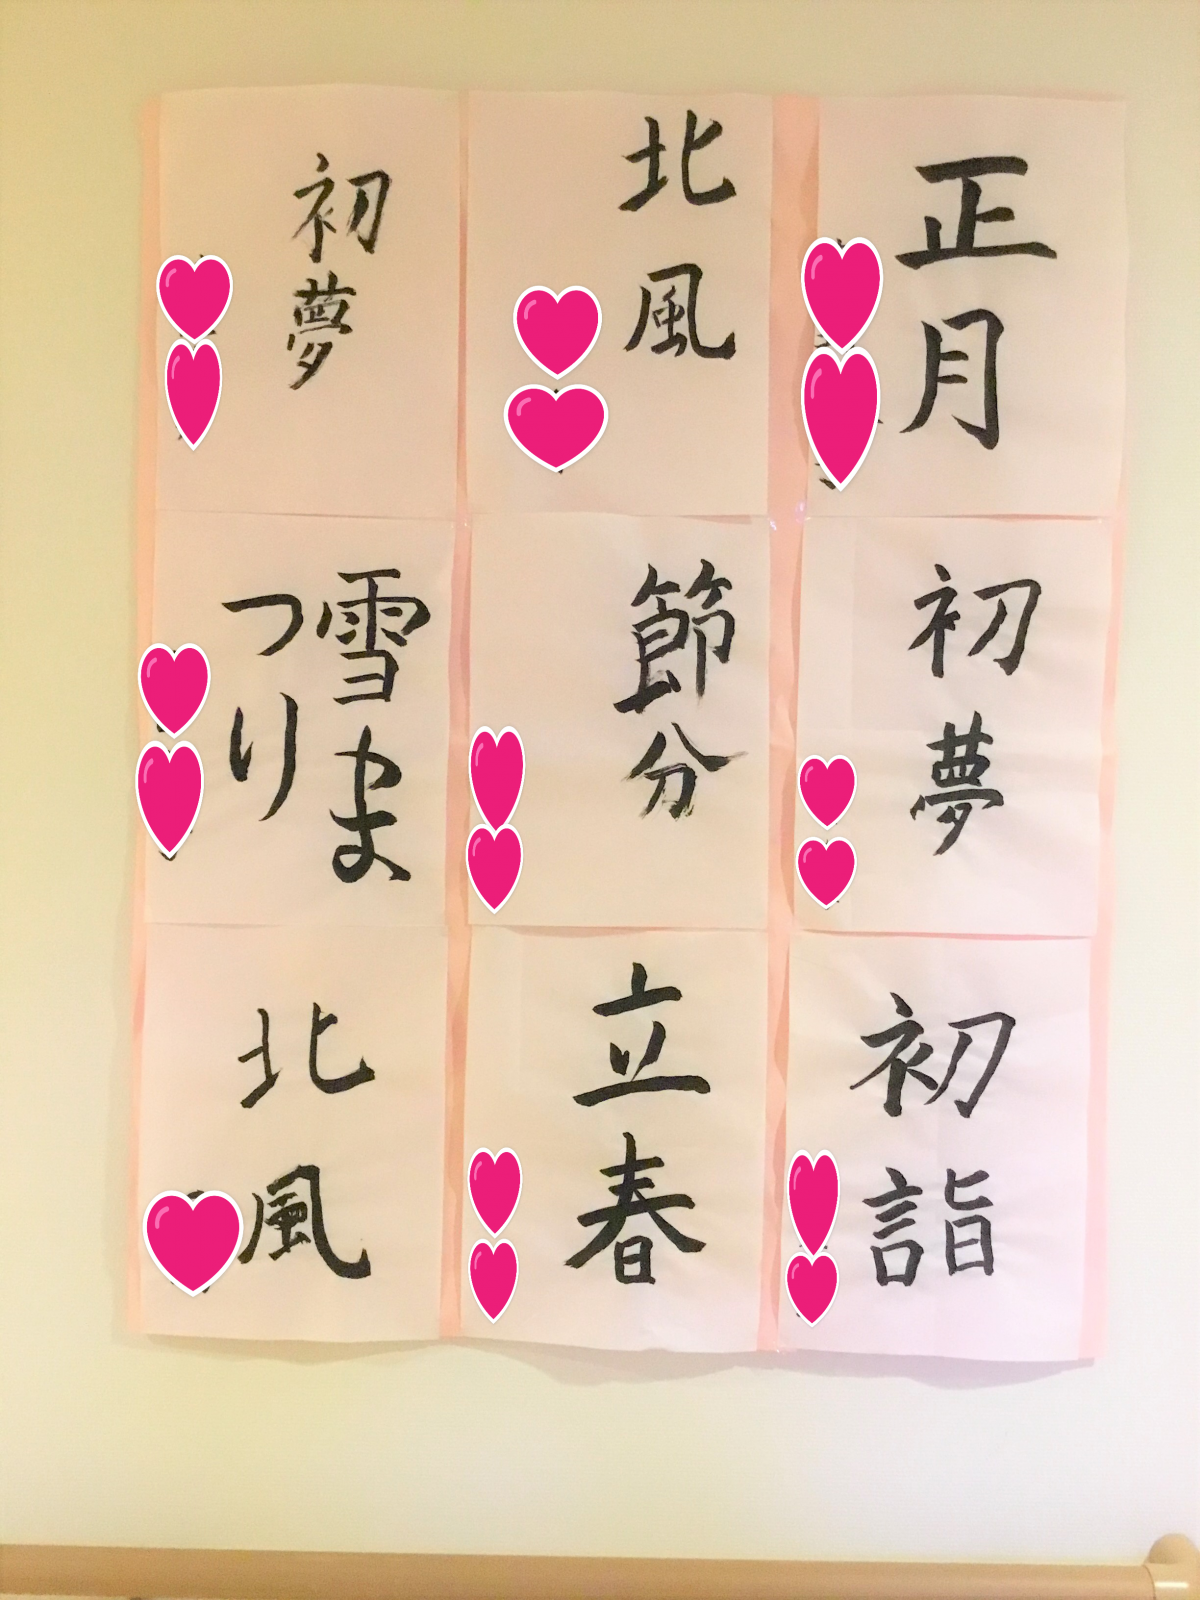 正月
初夢
初詣
北風
節分
立春
初夢
雪ま
つり
北風